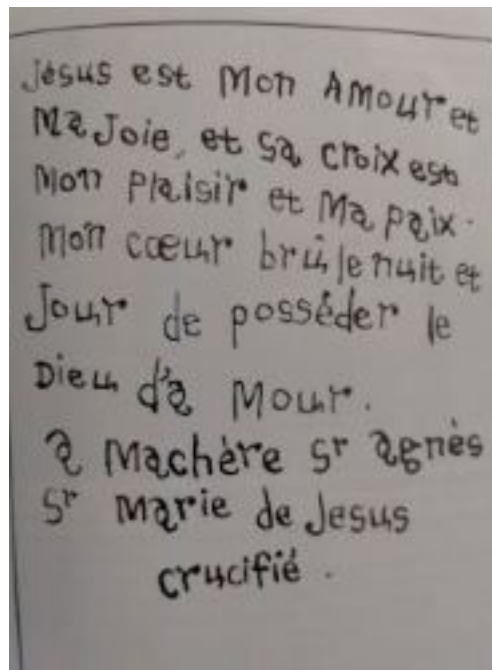 Jésus est Mon Amour et
Ma Joie, et sa croix est
Mon plaisir et Ma paix.
Mon cœur brûle nuit et
Jour de posséder le
Dieu d'a Mour.
a Machère Sr agnès
Sr Marie de Jesus
crucifié.